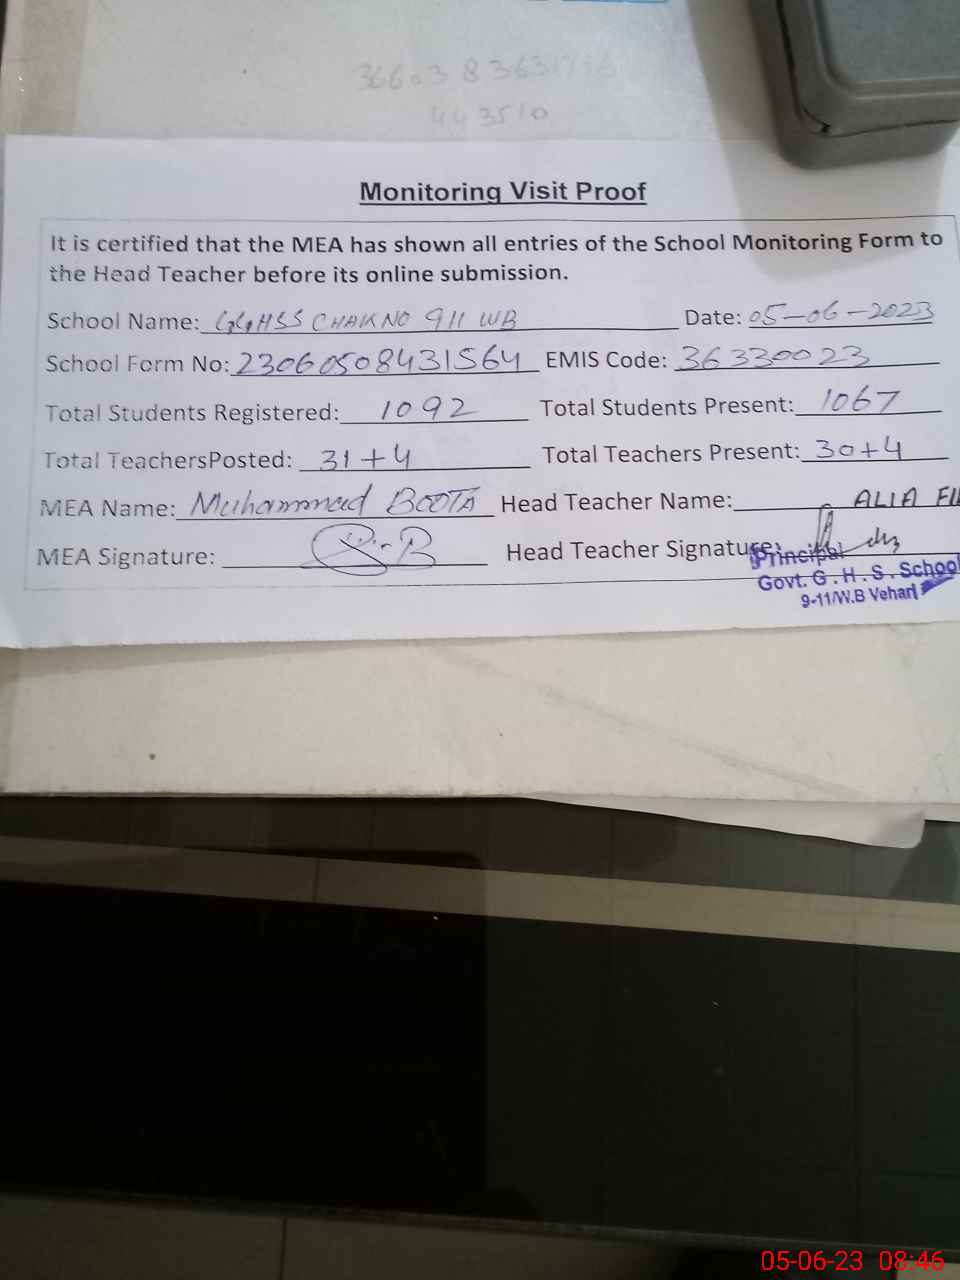 443510
Monitoring Visit Proof
It is certified that the MEA has shown all entries of the School Monitoring Form to
the Head Teacher before its online submission.
School Name: GGHSS CHAK NO 911 WB Date: 05-06-2023
School Form No: 23060508431564 EMIS Code: 36330023
Total Students Registered: 1092 Total Students Present: 1067
Total TeachersPosted: 31+4 Total Teachers Present: 30+4
MEA Name: Muhammad BOOTA Head Teacher Name: ALIA
MEA Signature: Head Teacher Signature:
Principal
Govt. G . H . S . School
9-11/W.B Vehari
05-06-23 08:46